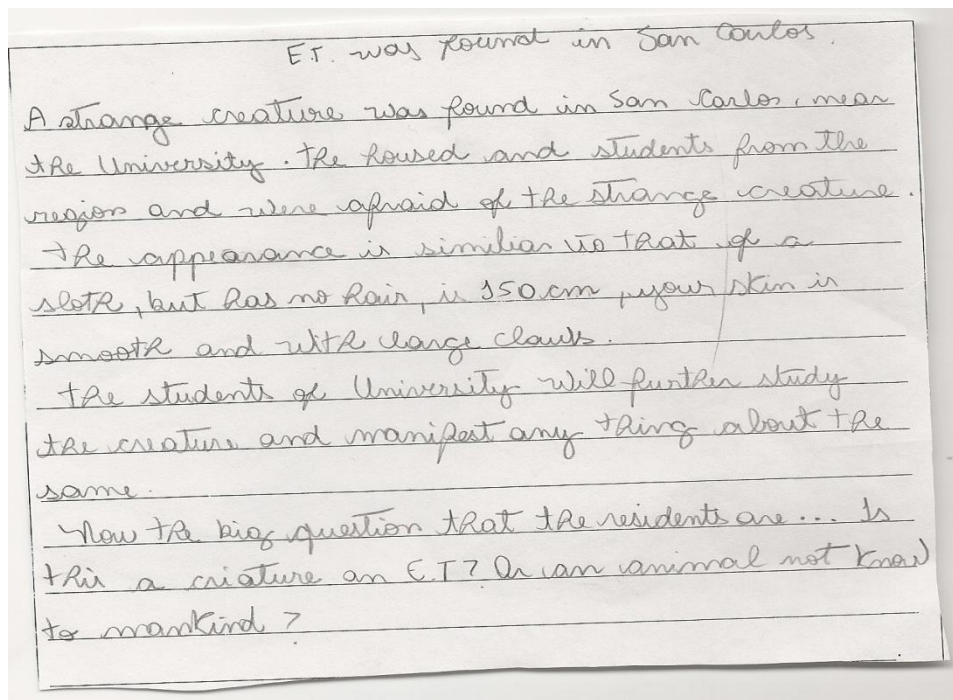 E.T. was found in San Carlos.
A strange creature was found in San Carlos, near
the University. the housed and students from the
region and were afraid of the strange creature.
the appearance is similiar to that of a
sloth, but has no hair, is 150 cm, your skin is
smooth and with large clawls.
the students of University will further study
the creature and manifest any thing about the
same.
Now the big question that the residents are... Is
this a criature an E.T? Or an animal not know
to mankind?